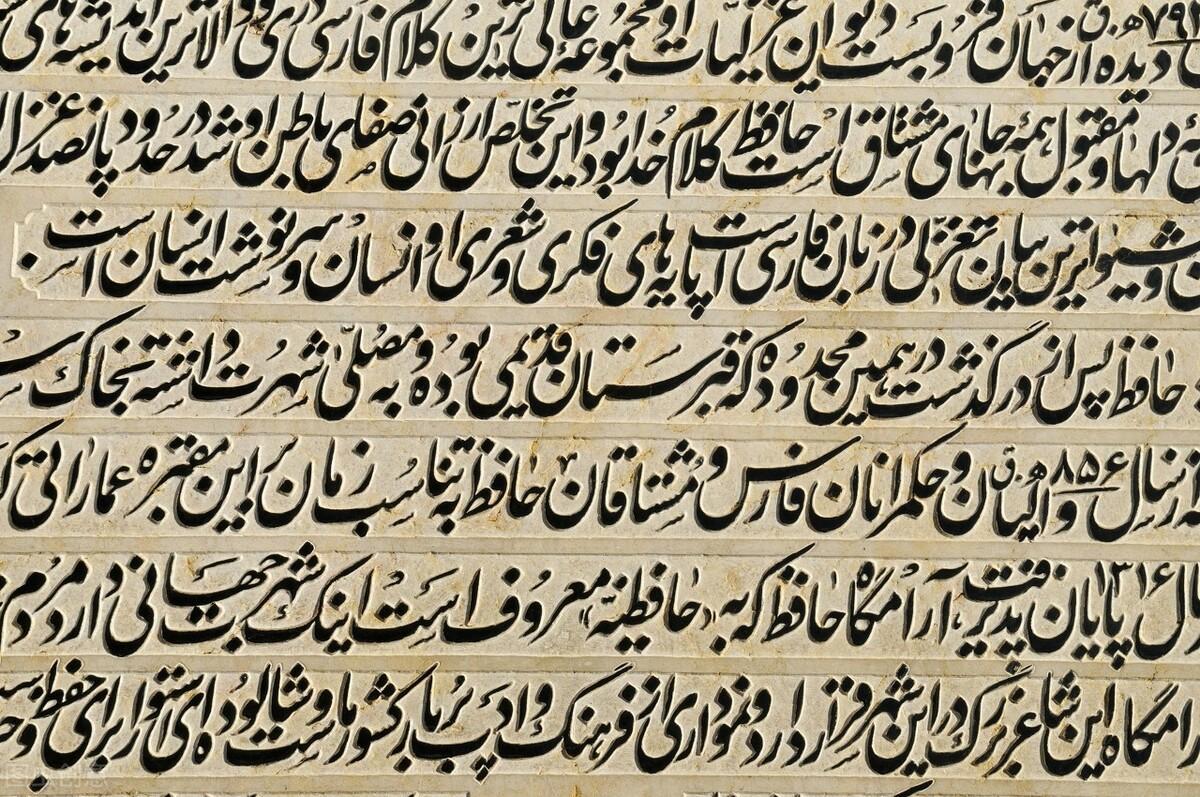 ۷۹۲ هـ.ق دیده از جهان فرو بست دیوان غزلیات او مجموعه عالی ترین کلام فارسی دری و والاترین اندیشه های
دلها و مقبول همه جانهای مشتاق است حافظ کلام خدا بود و این تخلص ارزانی صفای باطن او شد در حدود پانصد غزل
و شیواترین بیان تغزلی در زبان فارسی است پایه های فکری و شعری او انسان و سرنوشت انسان است
حافظ پس از درگذشت در همین محدوده که قبرستان قدیمی بوده و به مصلی شهرت داشته بخاک
سال ۸۵۶ هـ.ق والیان و حکمرانان فارس و مشتاقان حافظ به تناسب زمان بر این مقبره عماراتی
۱۳۱۶ پایان پذیرفت آرامگاه حافظ که به «حافظیه» معروف است اینک شهرت جهانی دارد مردم
این شاعر بزرگ در این شهر قرار دارد و نموداری از فرهنگ و ادب پربار کشور ما و شالوده ای استوار برای حفظ و